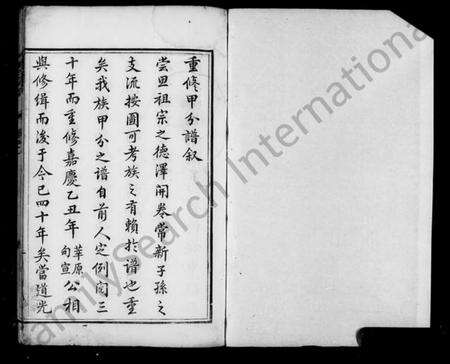 重修甲分譜叙
嘗思祖宗之德澤開卷常新子孫之
支流按圖可考族之有賴於譜也重
矣我族甲分之譜自前人定例閱三
十年而重修嘉慶乙丑年華原旬宣公相
與修緝而後于今已四十年矣當道光
FamilySearch International